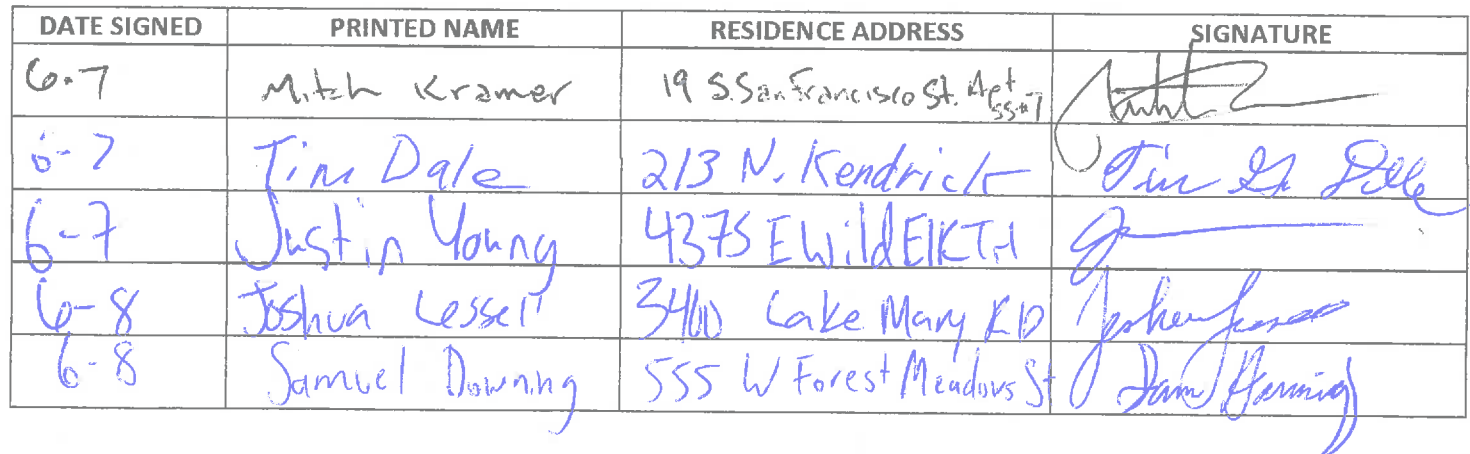 DATE SIGNED PRINTED NAME RESIDENCE ADDRESS SIGNATURE
6-7 Mitch Kramer 19 S. San Francisco St. Apt
6-7 Tim Dale 213 N. Kendrick
6-7 Justin Young 4375 E Wild Elk Trl
6-8 Joshua Lessell 3400 Lake Mary RD
6-8 Samuel Downing 555 W Forest Meadows St